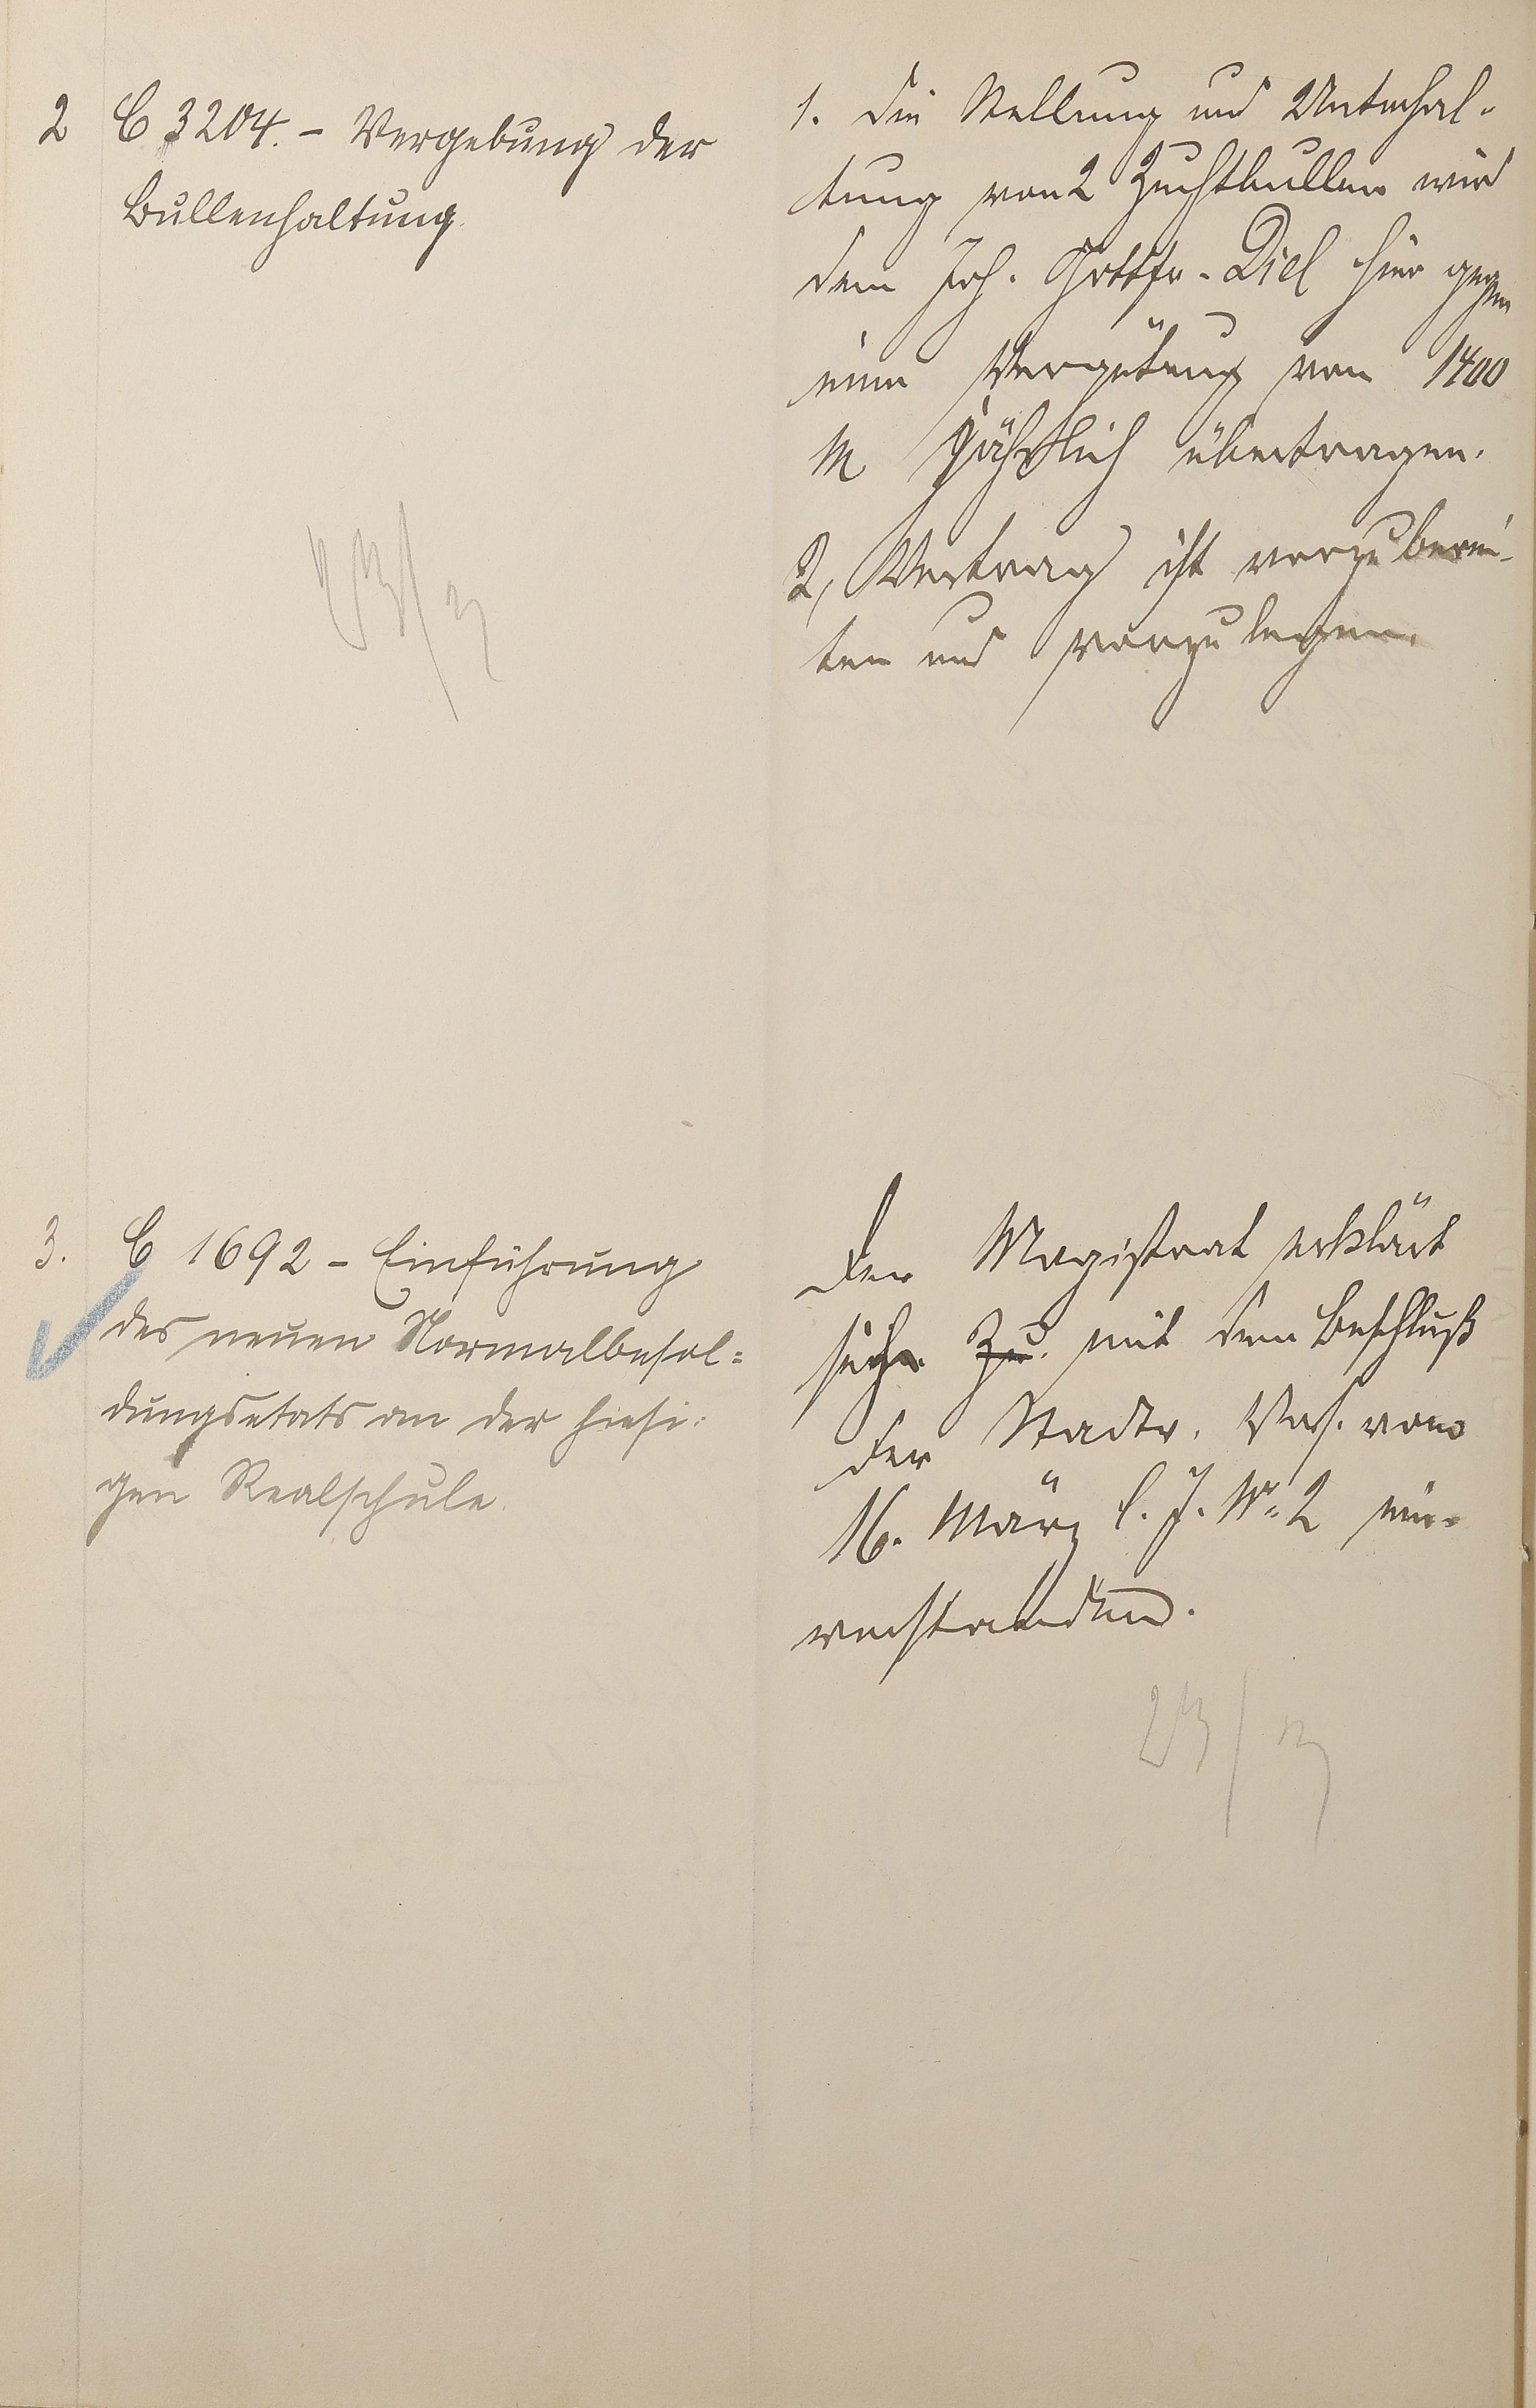 2 C 3204. - Vergebung der
Bullenhaltung.
1. Die Stellung und Unterhal-
tung von 2 Zuchtbullen wird
dem Joh. Gottfr. Diel hier gegen
eine Vergütung von 1400
M jährlich übertragen.
2, Vertrag ist vorzuberei-
ten und vorzulegen.
3. C 1692 - Einführung
des neuen Normalbesol=
dungsetats an der hiesi=
gen Realschule.
Der Magistrat erklärt
sich zu mit dem Beschluß
der Stadtv. Vers. vom
16. März l. J. No. 2 ein-
verstanden.
23/3